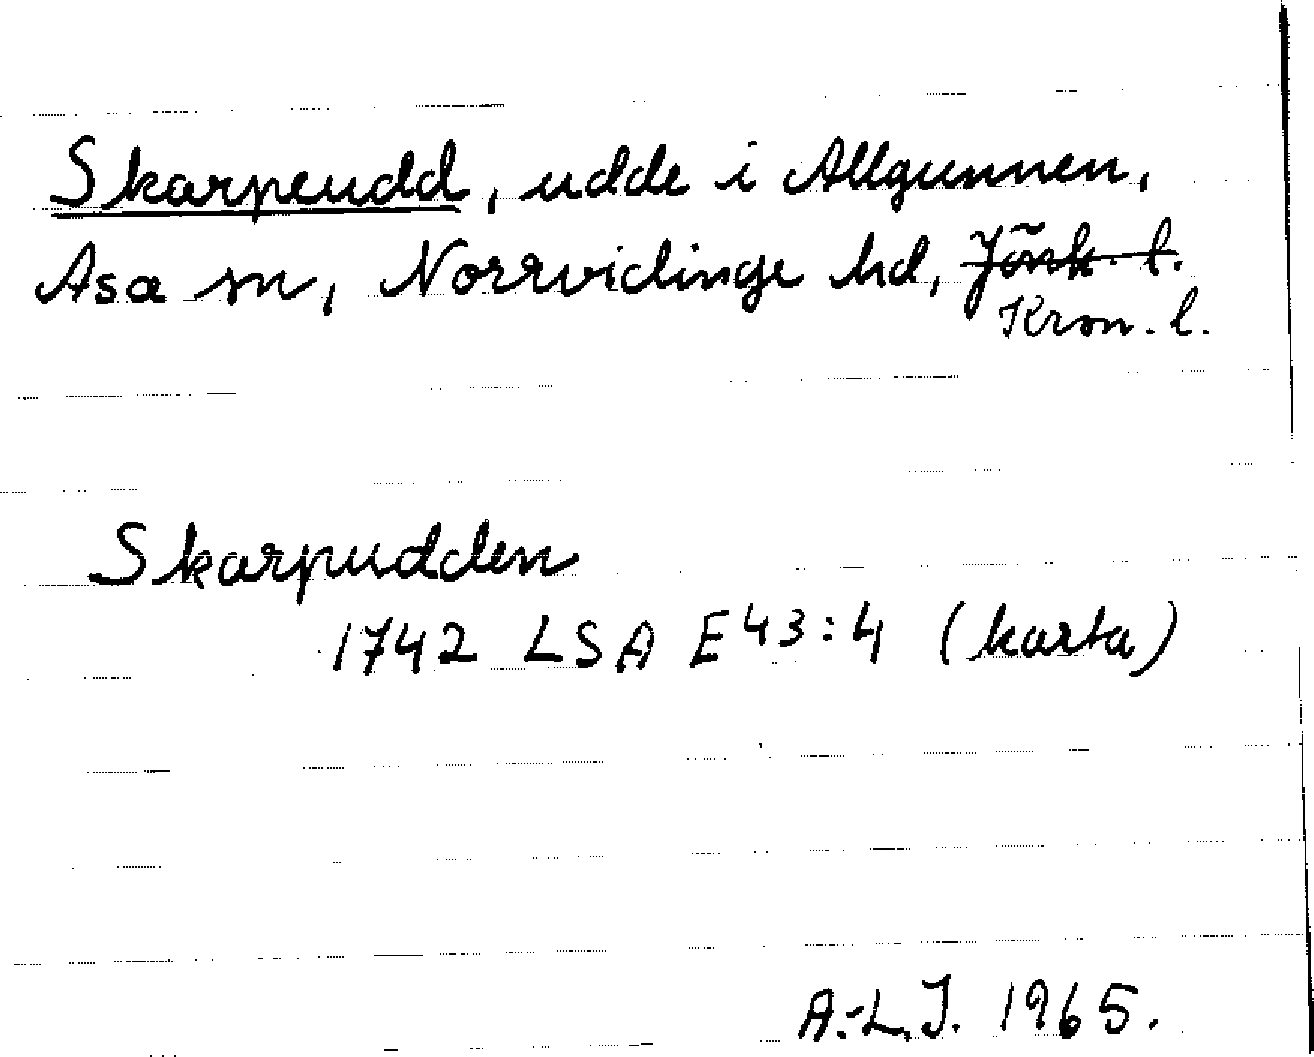 Skarpeudd, udde i Allgunnen,
Asa sn, Norrvidinge hd, Jönk. l.
Kron. l.
Skarpudden
1742 LSA E43:4 (karta)
A.-L.J. 1965.